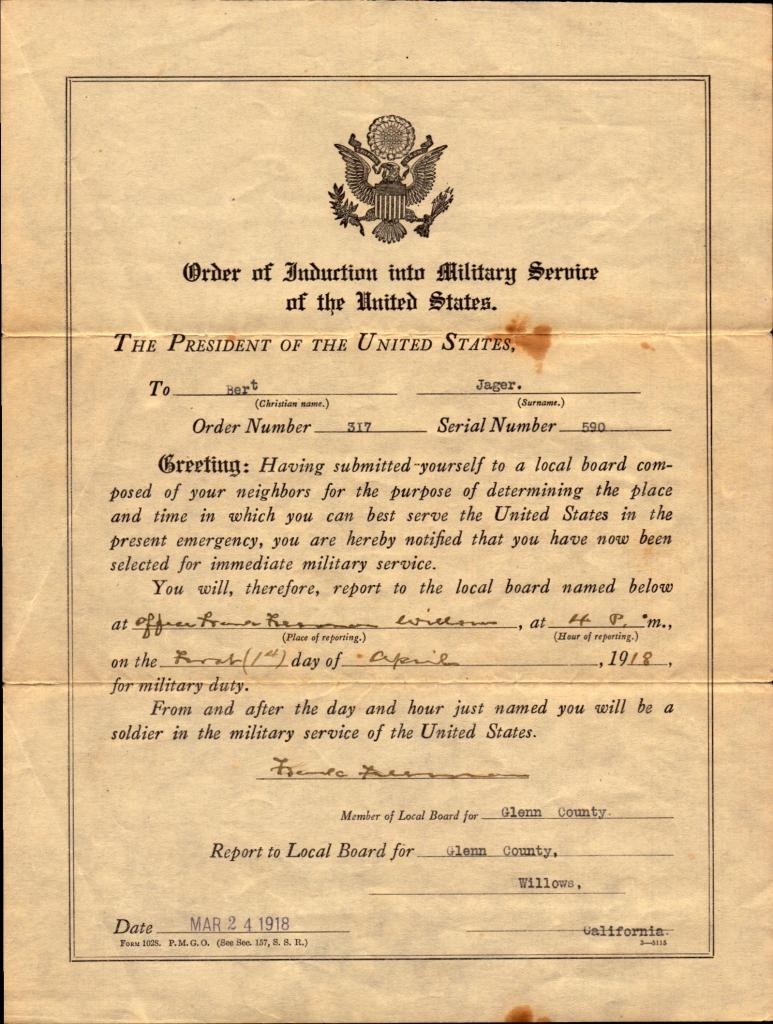 Order of Induction into Military Service
of the United States.
THE PRESIDENT OF THE UNITED STATES,
To Bert Jager.
(Christian name.) (Surname.)
Order Number 317 Serial Number 590
Greeting: Having submitted yourself to a local board com-
posed of your neighbors for the purpose of determining the place
and time in which you can best serve the United States in the
present emergency, you are hereby notified that you have now been
selected for immediate military service.
You will, therefore, report to the local board named below
at office Frank Freeman Willows, at 4 P. m.,
(Place of reporting.) (Hour of reporting.)
on the First (1st) day of April, 1918,
for military duty.
From and after the day and hour just named you will be a
soldier in the military service of the United States.
Frank Freeman
Member of Local Board for Glenn County.
Report to Local Board for Glenn County,
Willows,
Date MAR 24 1918 California.
FORM 1028. P. M. G. O. (See Sec. 157, S. S. R.) 3—5115